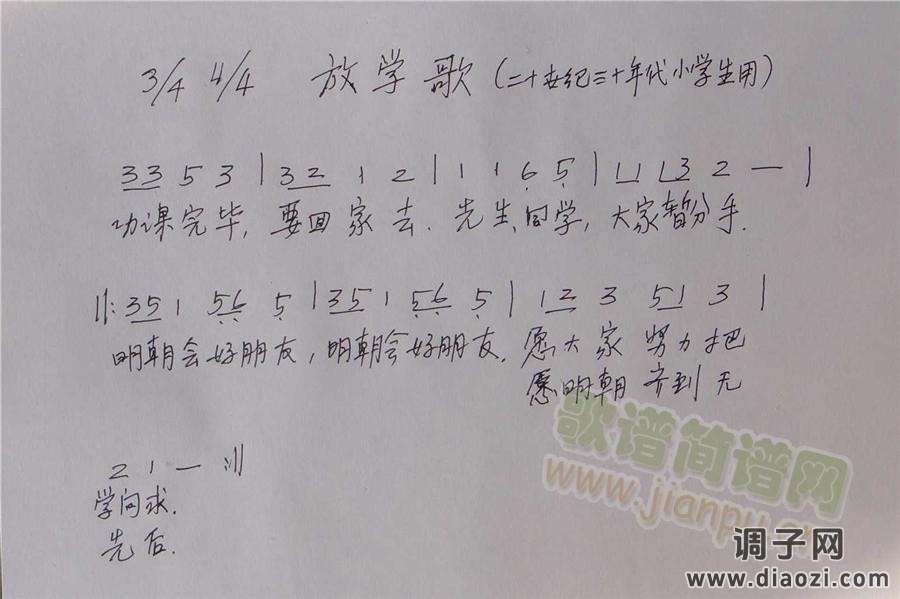 3/4 4/4 放学歌(二十世纪三十年代小学生用)
33 5 3 | 32 1 2 | 1 1 6 5 | 11 13 2 — |
功课完毕, 要回家去. 先生、同学, 大家暂分手.
||: 35 1 56 5 | 35 1 56 5 | 12 3 51 3 |
明朝会好朋友, 明朝会好朋友. 愿大家努力把
愿明朝齐到无
2 1 — :||
学问求.
先后.
歌谱简谱网
www.jianpu.cn
调子网
www.diaozi.com